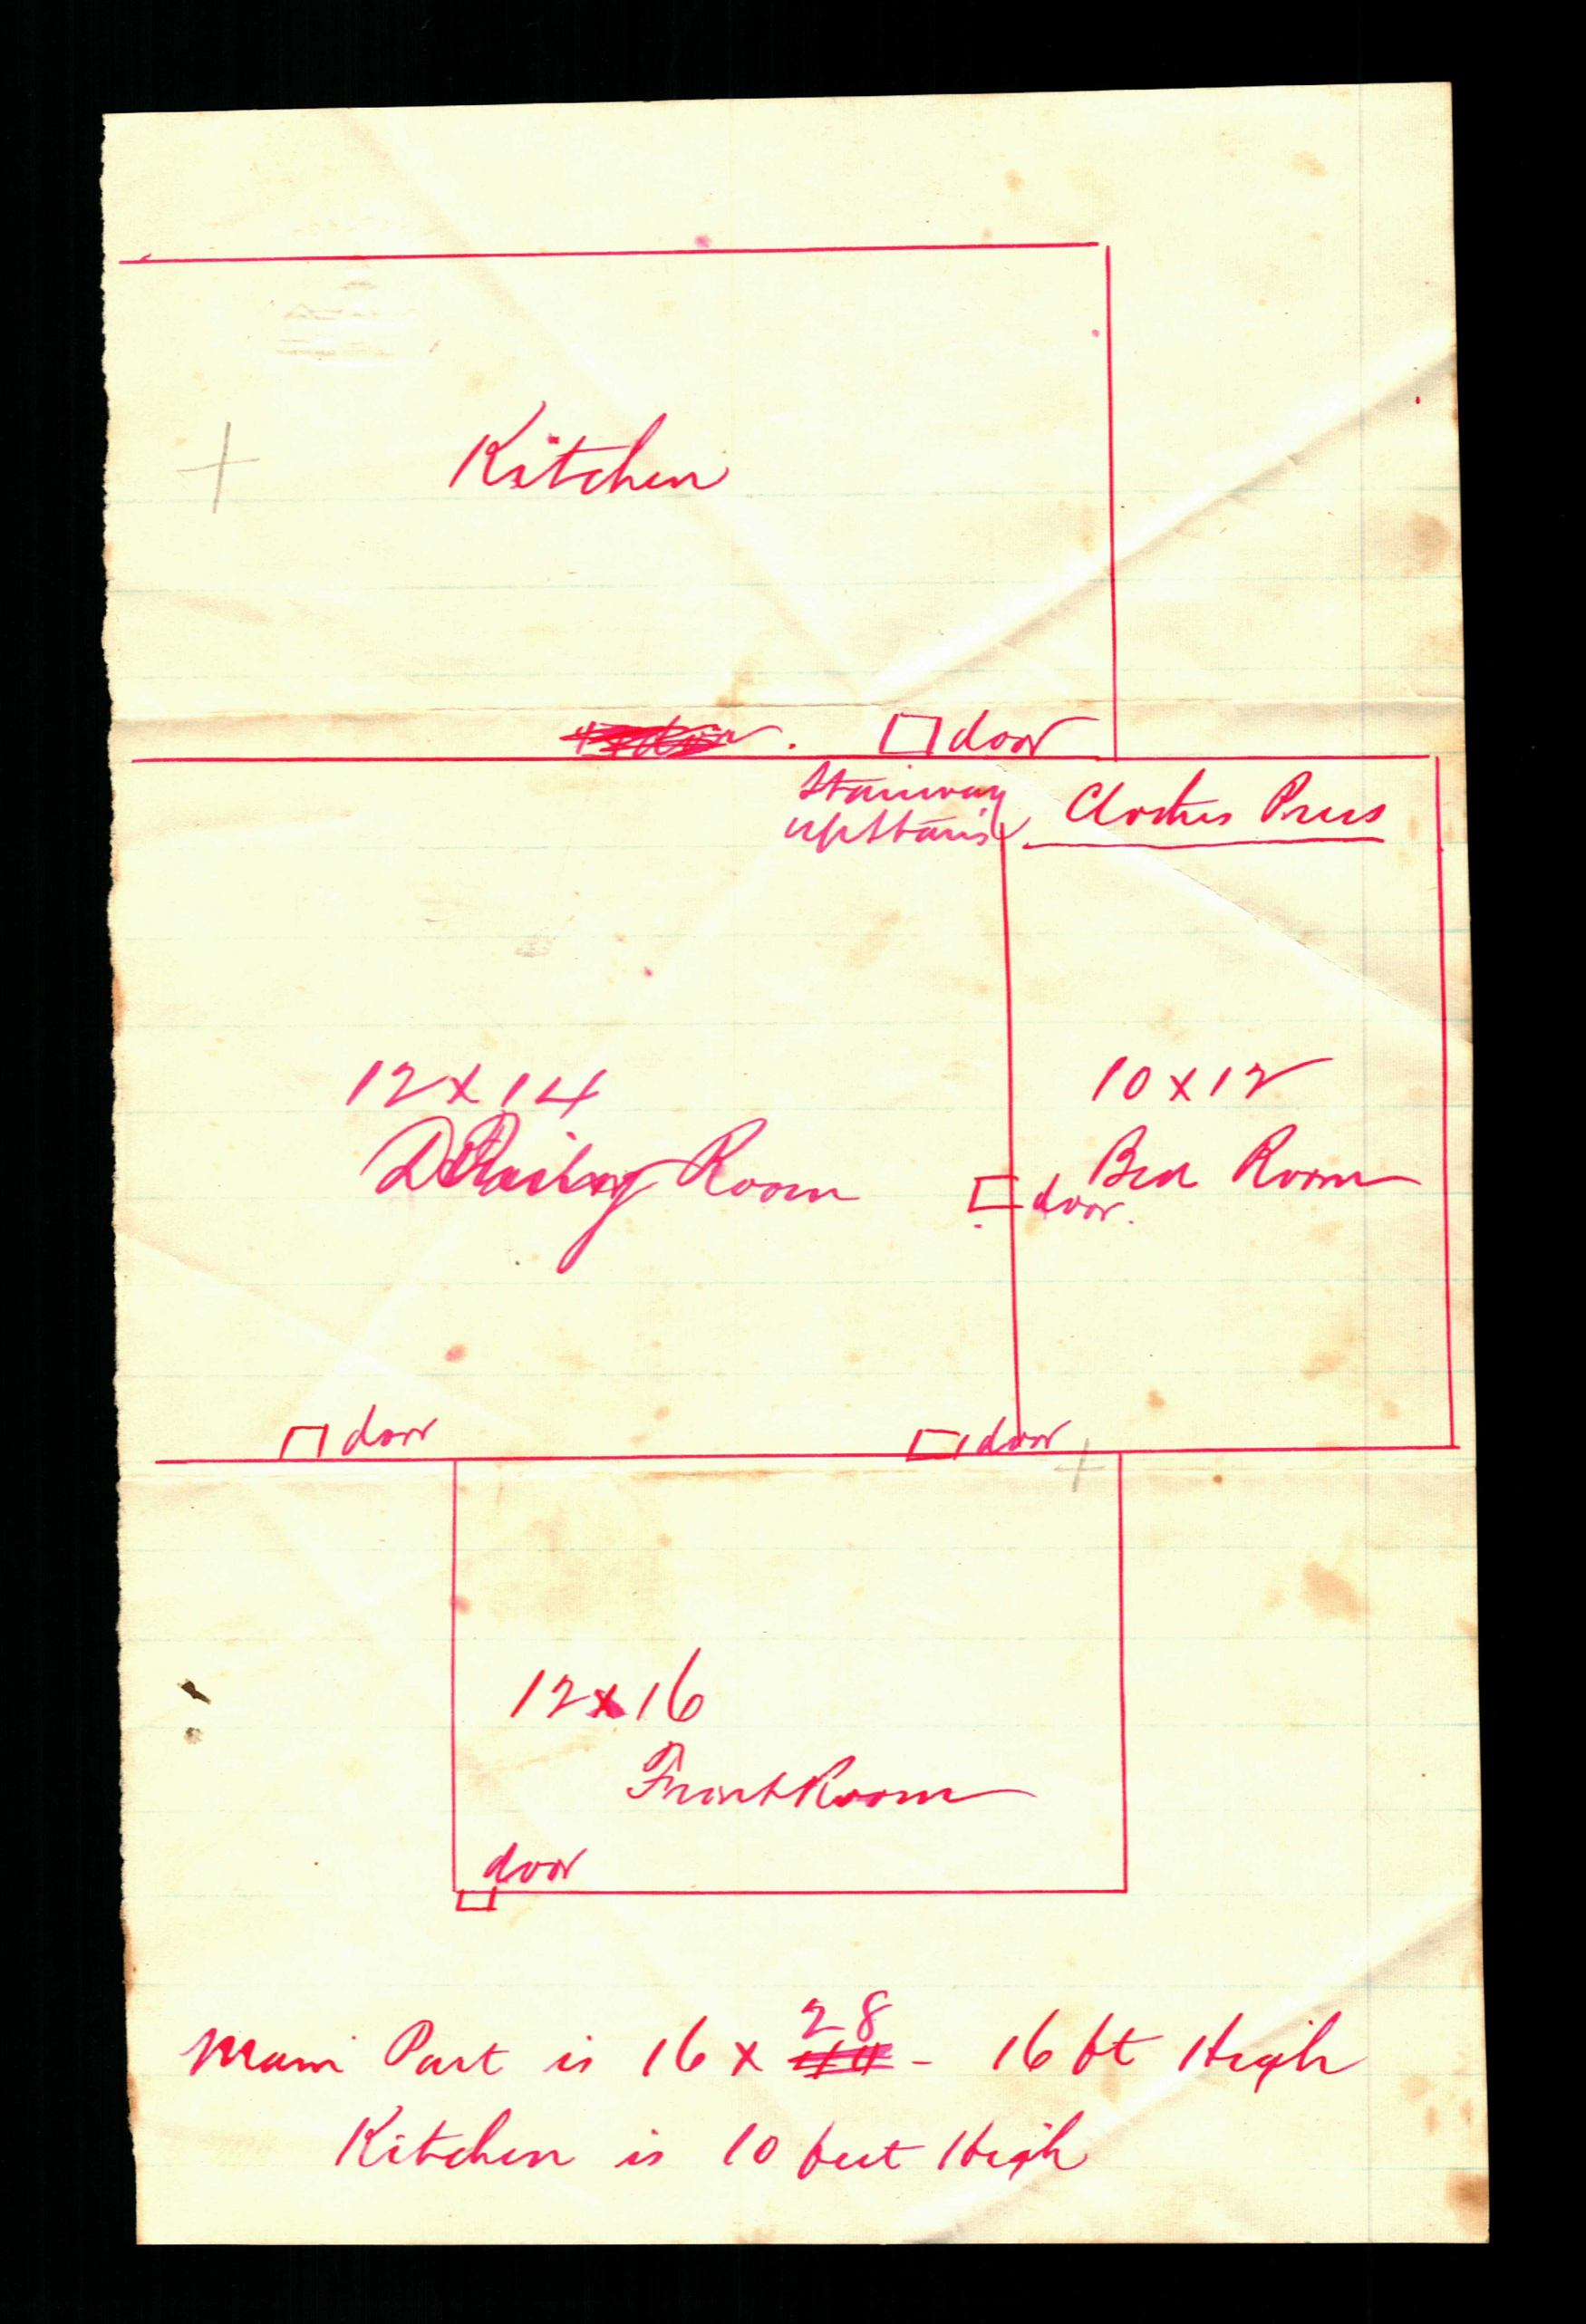 Kitchen
door
Stairway
upstairs
Clothes Press
12 x 14
Dining Room
10 x 12
Bed Room
door.
door
door
12 x 16
Front Room
door
Main Part is 16 x 28 - 16 ft High
Kitchen is 10 feet High